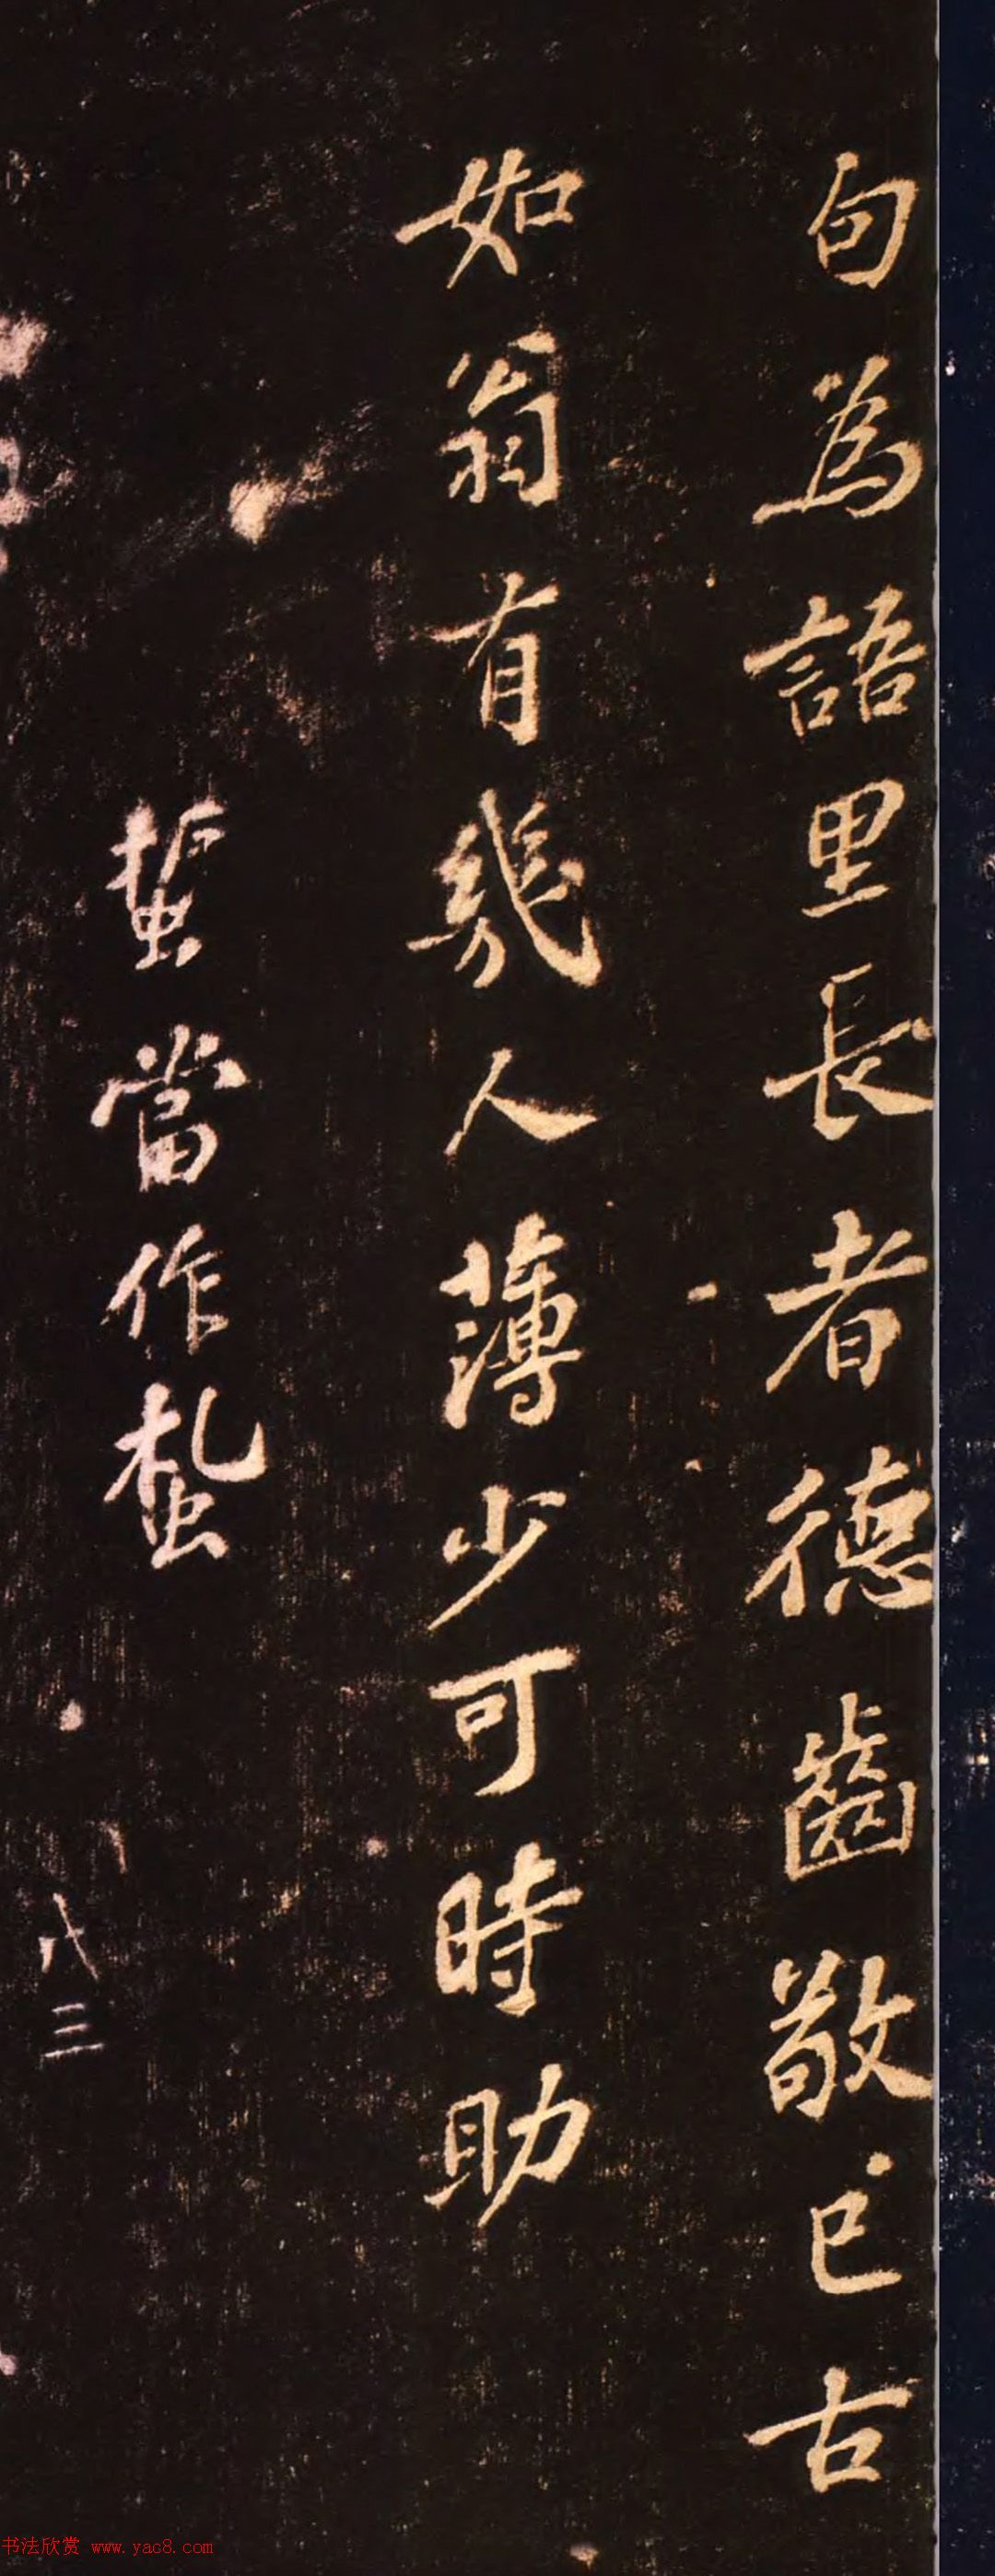 句為語里長者德齒敬已古
如翁有幾人薄少可時助
蜇當作蚻
八三
书法欣赏 www.yac8.com